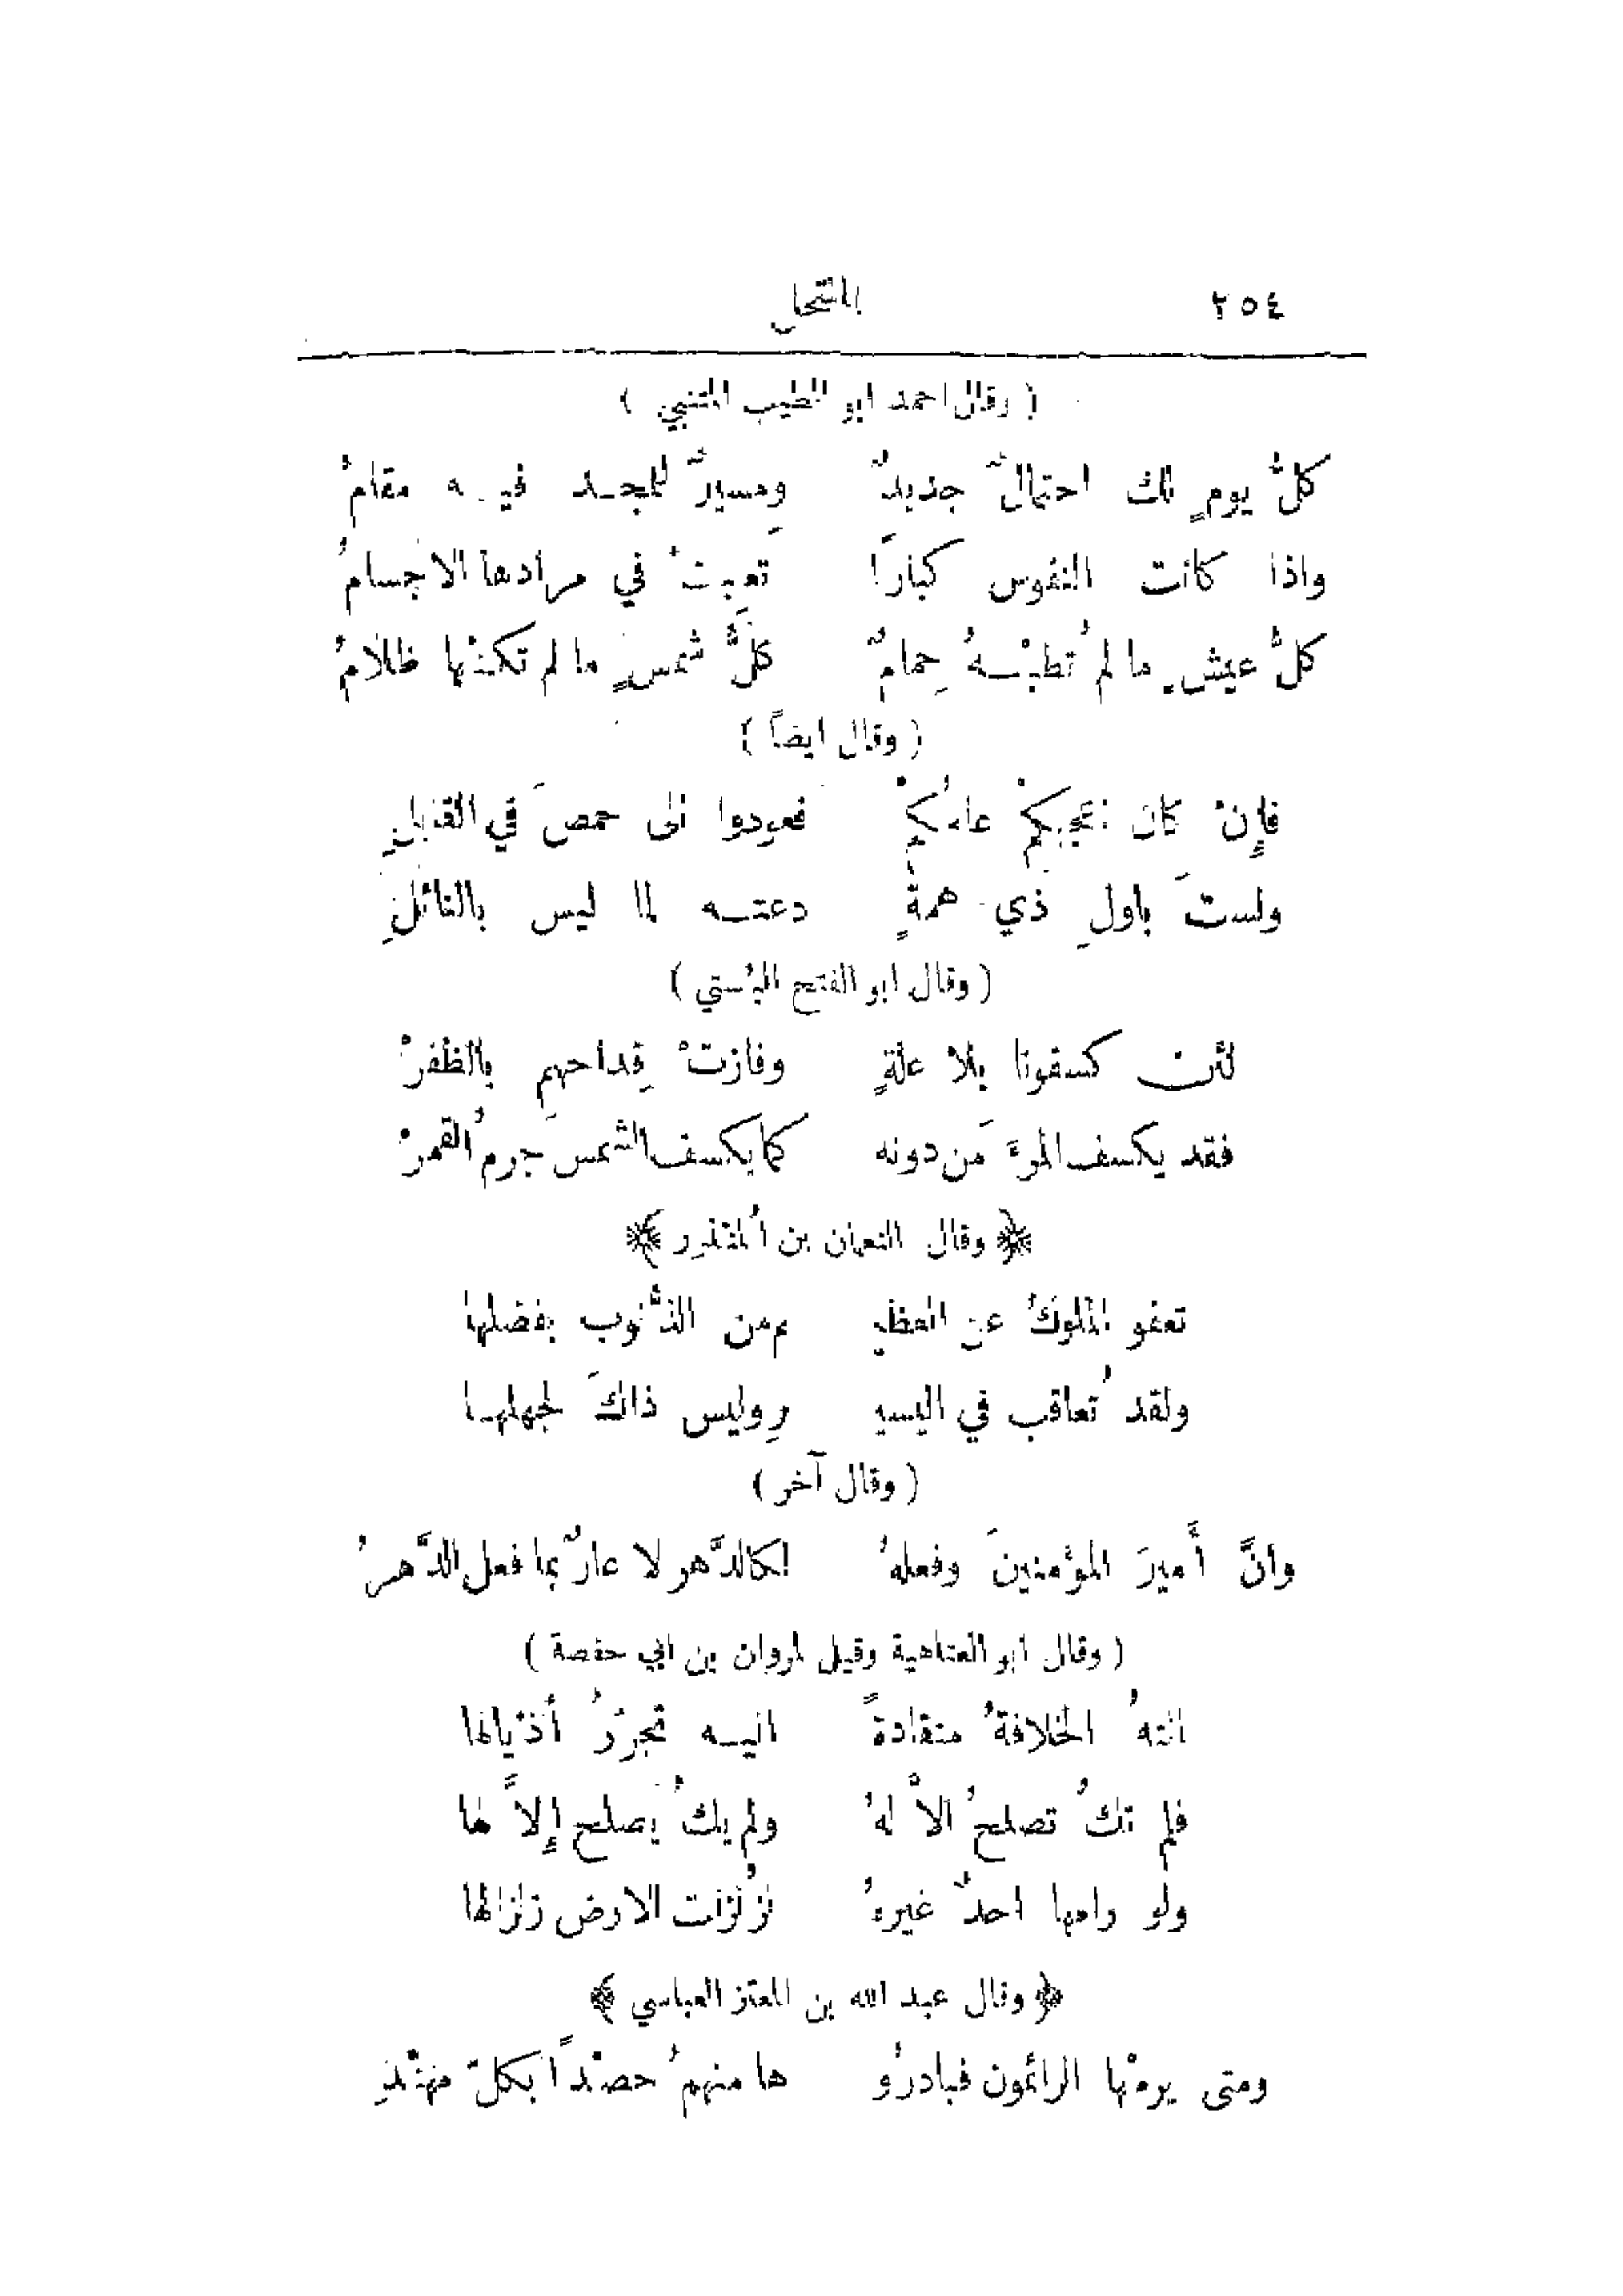 ٢٥٤ المنتحل
( وقال احمد ابو الطيب المتنبي )
كلُّ يومٍ لك احتمالٌ جديدٌ ومسيرٌ للمجد فيه مقامُ
واذا كانت النفوس كبارًا تعبتْ في مرادها الاجسامُ
كلُّ عيشٍ ما لم تُطبْهُ حِمامٌ كلُّ شمسٍ ما لم تكنْها ظلامُ
( وقال ايضاً )
فإِنْ كان اعجبكمْ عامُكمْ فعودوا الى حمصَ في القابلِ
ولستَ باولِ ذي همةٍ دعته لما ليس بالنائلِ
( وقال ابو الفتح البُستي )
لئن كسفونا بلا علةٍ وفازتْ قِداحهمِ بالظفرْ
فقد يكسف المرءَ مَن دونه كما يكسف الشمسَ جرمُ القمرْ
﴿ وقال النعمان بن المُنذِر ﴾
تعفو الملوكُ عن العظيـ ـم من الذُّنوب بفضلها
ولقد تُعاقب في اليسيـ ـرِ وليس ذاكَ لجهلها
( وقال آخر )
وانَّ أَميرَ المؤمنينَ وفعلهُ لكالدَّهر لا عارٌ بما فعل الدَّهرُ
( وقال ابو العتاهية وقيل لمروان بن ابي حفصة )
اتتهُ الخلافةُ منقادةً اليه تجرّرُ أَذيالها
فلم تكُ تصلحُ الاَّ لهُ ولم يكُ يصلح إِلاَّ لها
ولو رامها احدٌ غيرهُ لزُلزلت الارض زلزالها
﴿ وقال عبد الله بن المعتز العباسي ﴾
ومتى يرمْها الرائمون فبادرُو ها منهمُ حصدًا بكلّ مهنّدِ